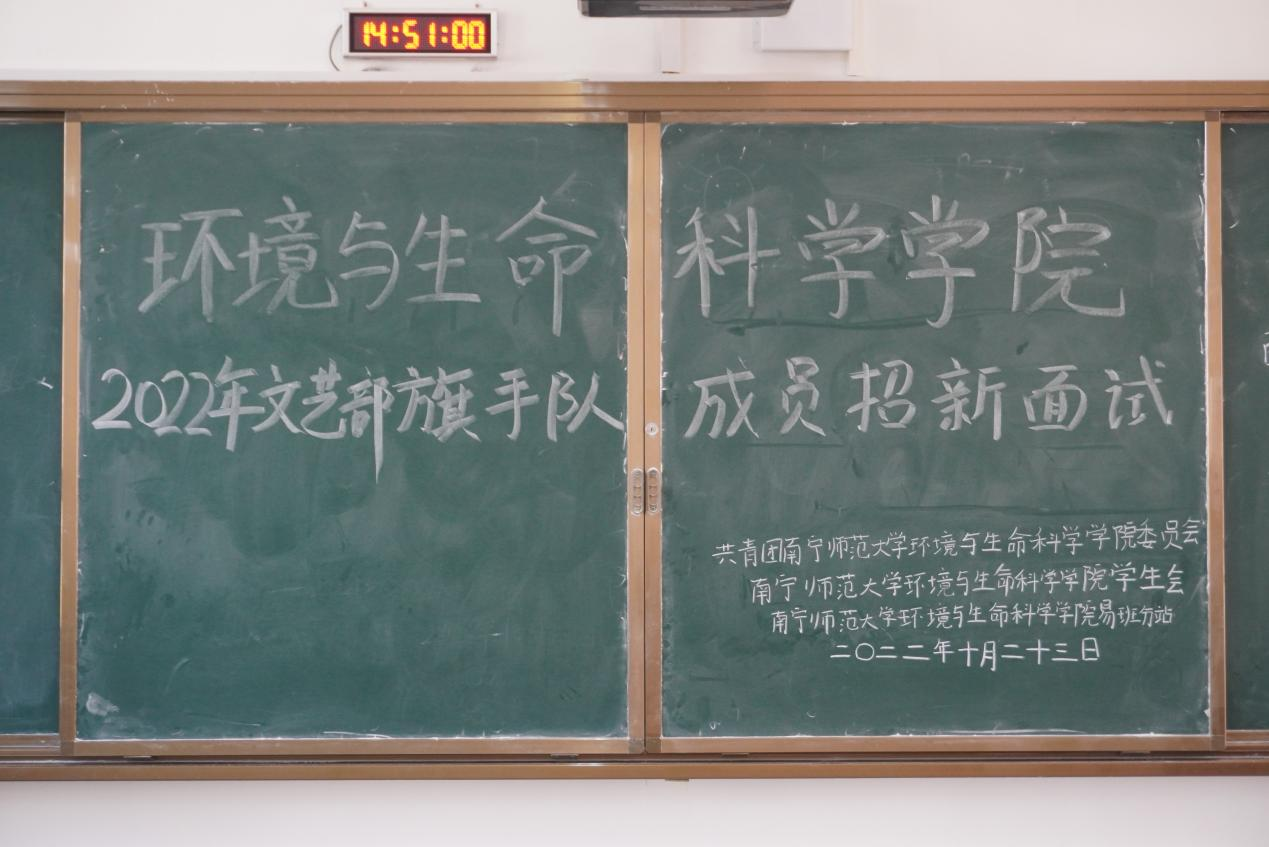 14:51:00
环境与生命科学学院
2022年文艺部旗手队成员招新面试
共青团南宁师范大学环境与生命科学学院委员会
南宁师范大学环境与生命科学学院学生会
南宁师范大学环境与生命科学学院易班分站
二〇二二年十月二十三日